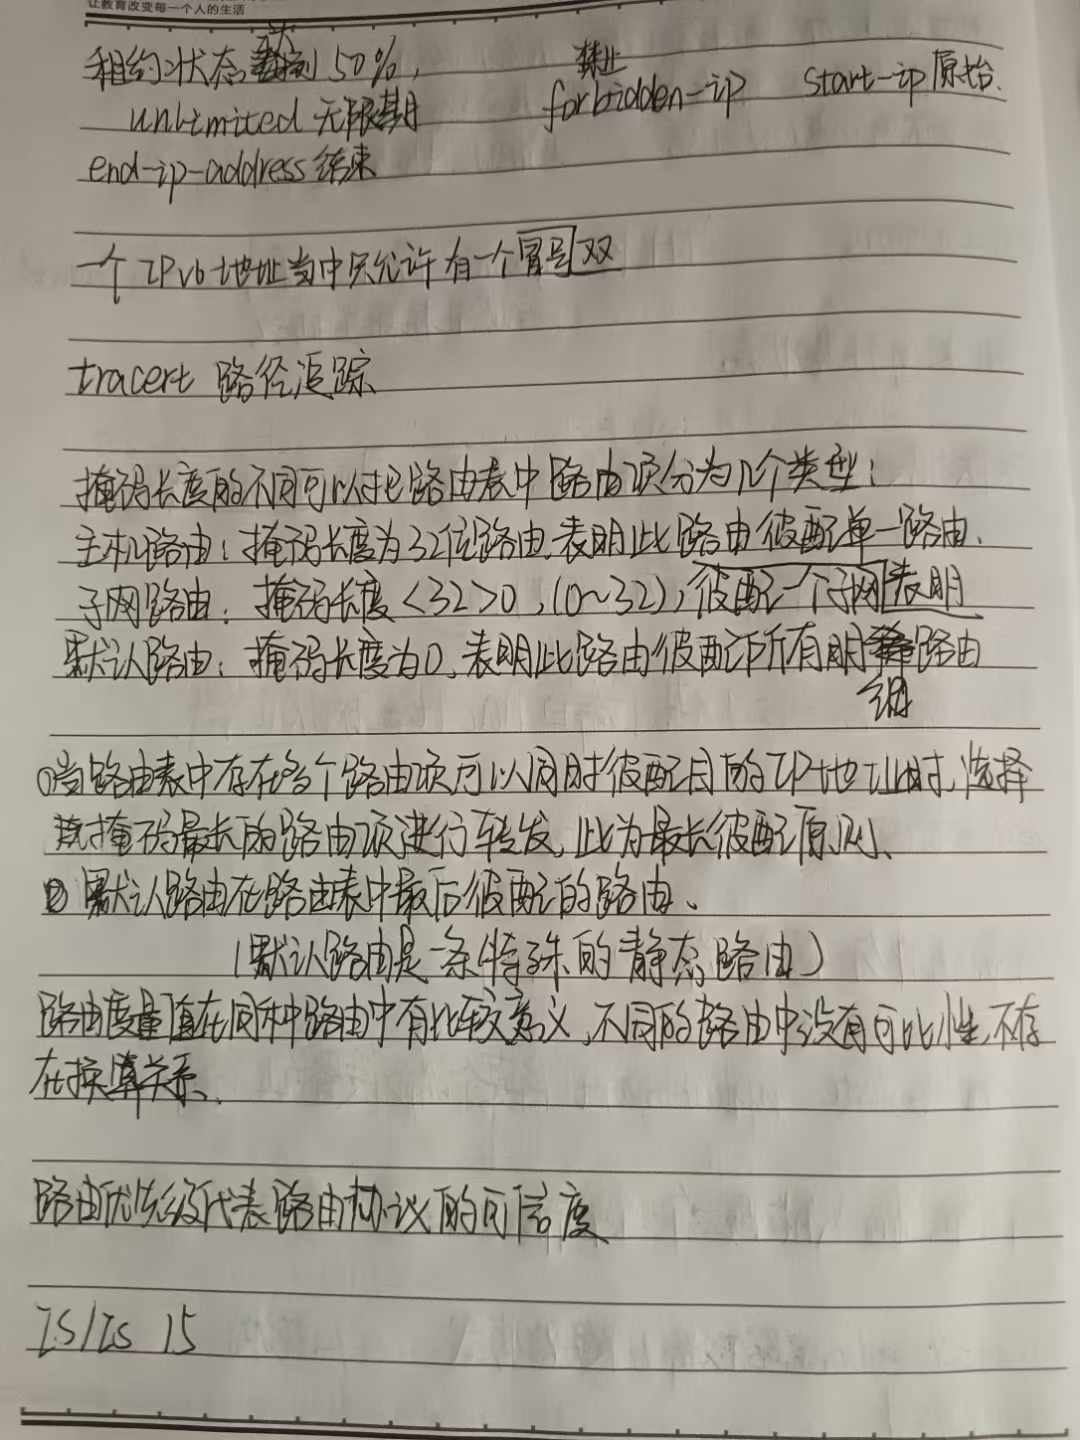 让教育改变每一个人的生活
租约状态到50%,
禁止
forbidden-ip start-ip原始.
unlimited 无限期
end-ip-address 结束
一个IPv6地址当中只允许有一个冒号双
tracert 路径追踪
掩码长度的不同可以把路由表中路由项分为几个类型:
主机路由:掩码长度为32位路由.表明此路由彼配单一路由.
子网路由:掩码长度<32>0,(0~32),彼配一个子网表明
默认路由:掩码长度为0,表明此路由彼配所有明路由
细
①当路由表中存在多个路由项可以同时彼配目的IP地址时,选择
掩码最长的路由项进行转发,此为最长彼配原则、
② 默认路由在路由表中最后彼配的路由、
(默认路由是一条特殊的静态路由)
路由度量值在同种路由中有比较意义,不同的路由中没有可比性,不存
在换算关系、
路由优先级代表路由协议的可信度
IS/IS 15